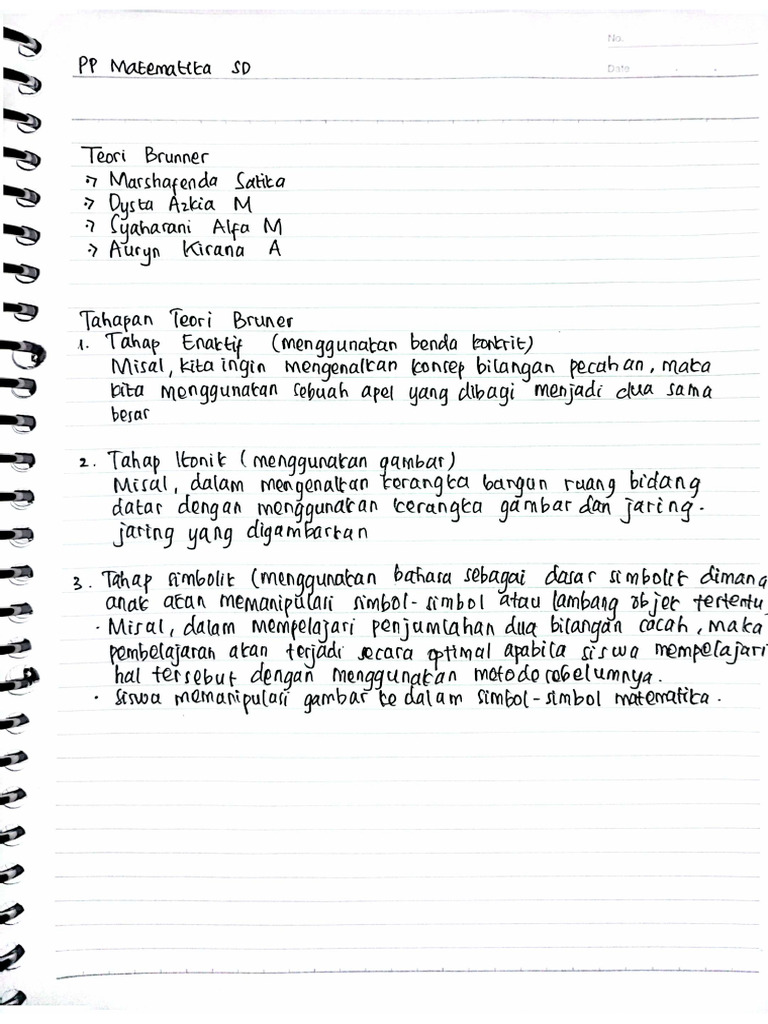 No.
Date
PP Matematika SD
Teori Brunner
Marshafenda Satika
Dysta Azkia M
Syaharani Alfa M
Auryn Kirana A
Tahapan Teori Bruner
1. Tahap Enaktif (menggunakan benda konkrit)
Misal, kita ingin mengenalkan konsep bilangan pecahan, maka
kita menggunakan sebuah apel yang dibagi menjadi dua sama
besar
2. Tahap Ikonik (menggunakan gambar)
Misal, dalam mengenalkan kerangka bangun ruang bidang
datar dengan menggunakan kerangka gambar dan jaring-
jaring yang digambarkan
3. Tahap simbolik (menggunakan bahasa sebagai dasar simbolik dimana
anak akan memanipulasi simbol-simbol atau lambang objek tertentu)
· Misal, dalam mempelajari penjumlahan dua bilangan cacah, maka
pembelajaran akan terjadi secara optimal apabila siswa mempelajari
hal tersebut dengan menggunakan metode sebelumnya.
· siswa memanipulasi gambar ke dalam simbol-simbol matematika.